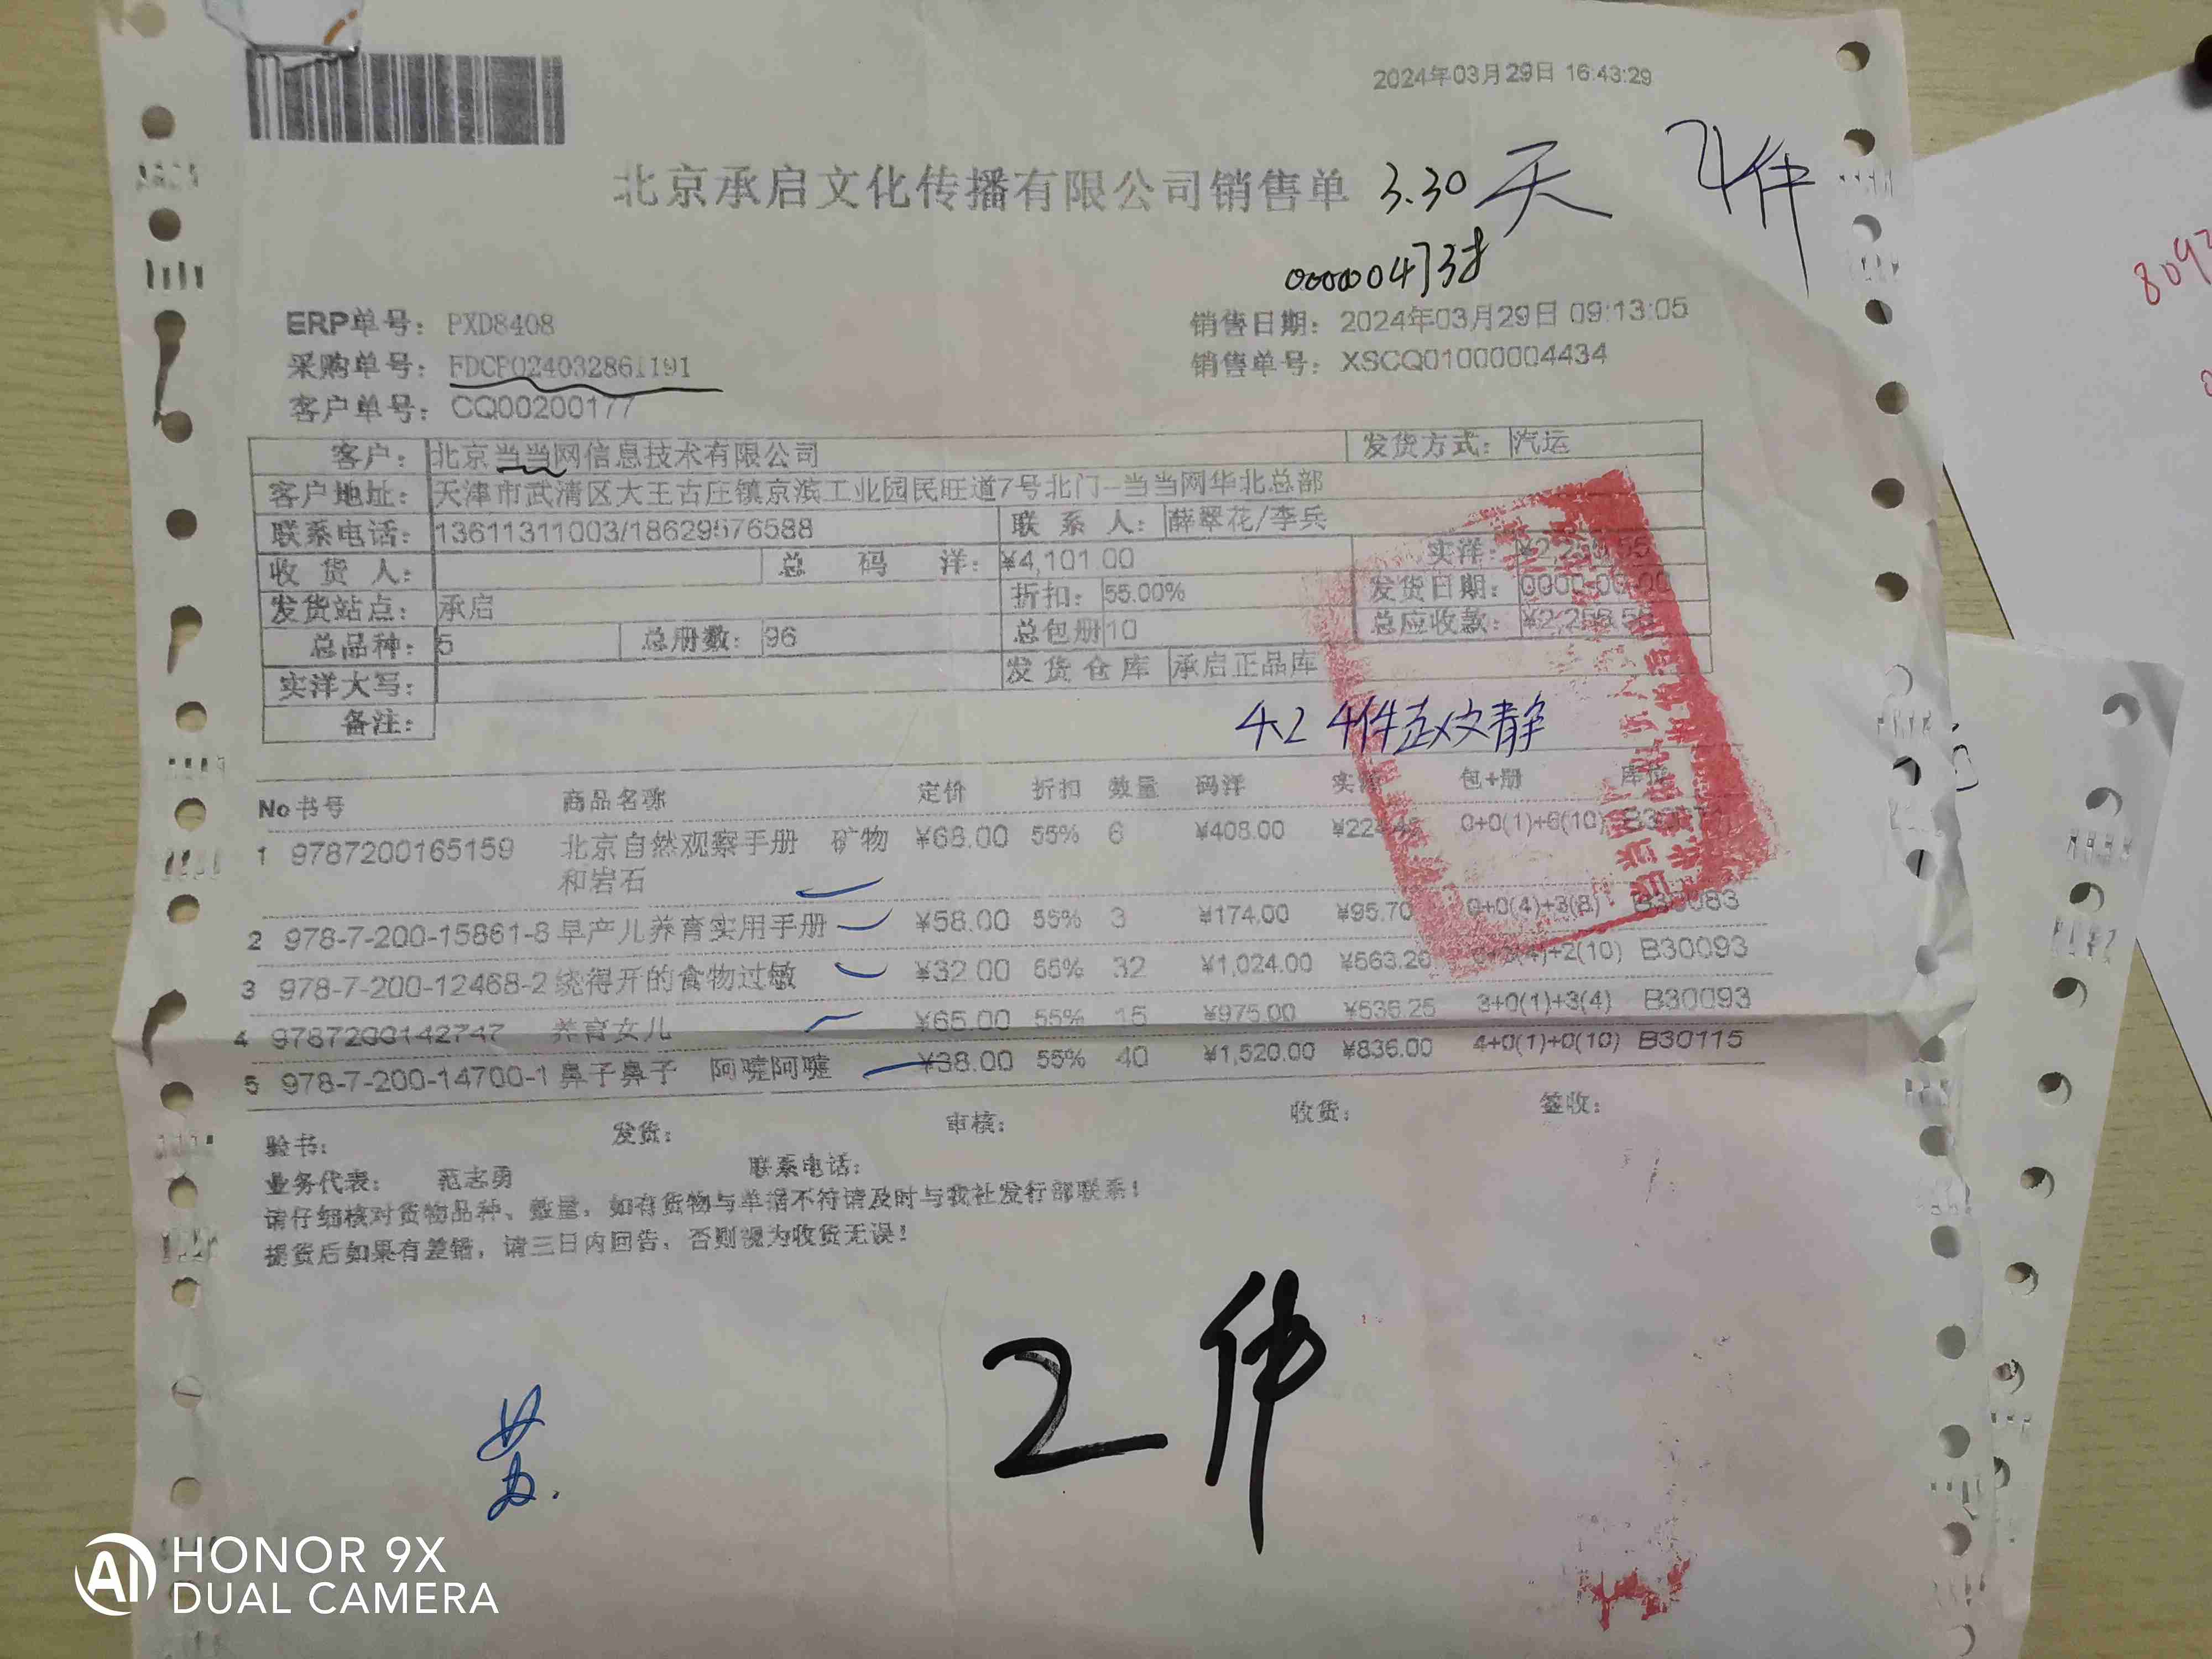 2024年03月29日 16:43:29
北京承启文化传播有限公司销售单 3.30 天
ERP单号： PXD8408 销售日期： 2024年03月29日 09:13:05
采购单号： FDCP024032861191 销售单号： XSCQ01000004434
客户单号： CQ00200177
客户： 北京当当网信息技术有限公司 发货方式： 汽运
客户地址： 天津市武清区大王古庄镇京滨工业园民旺道7号北门--当当网华北总部
联系电话： 13611311003/18629576588 联系人： 薛翠花/李兵
收货人： 总码洋： ¥4,101.00 实洋：
发货站点： 承启 折扣： 55.00% 发货日期： 0000-00-00
总品种： 5 总册数： 96 总包册 10 总应收款：
实洋大写： 发货仓库 承启正品库
备注：
4.2 4件赵文静
No 书号 商品名称 定价 折扣 数量 码洋 实洋 包+册 库位
1 9787200165159 北京自然观察手册 矿物和岩石 ¥68.00 55% 6 ¥408.00 0+0(1)+6(10)
2 978-7-200-15861-8 早产儿养育实用手册 ¥58.00 55% 3 ¥174.00 ¥95.70 0+0(4)+3(8)
3 978-7-200-12468-2 绕得开的食物过敏 ¥32.00 55% 32 ¥1,024.00 ¥563.20 B30093
4 9787200142747 养育女儿 ¥65.00 55% 15 ¥975.00 ¥536.25 3+0(1)+3(4) B30093
5 978-7-200-14700-1 鼻子鼻子 阿嚏阿嚏 ¥38.00 55% 40 ¥1,520.00 ¥836.00 4+0(1)+0(10) B30115
验书： 发货： 审核： 收货： 签收：
业务代表： 范志勇 联系电话：
请仔细核对货物品种、数量，如有货物与单据不符请及时与我社发行部联系！
提货后如果有差错，请三日内回告，否则视为收货无误！
2件
苏.
HONOR 9X
DUAL CAMERA